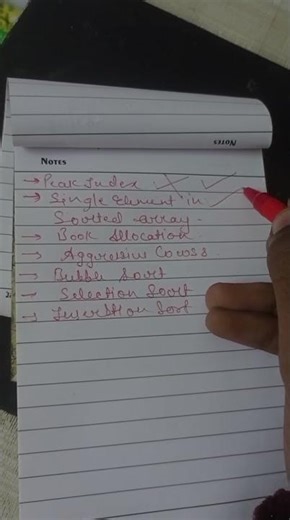 NOTES
NOTES
→ Peak Index
→ Single Element in
Soorted array.
→ Book Allocation
→ Aggressive Cowss
→ Bubble Sort
→ Selection Soort
→ Insertion Sort